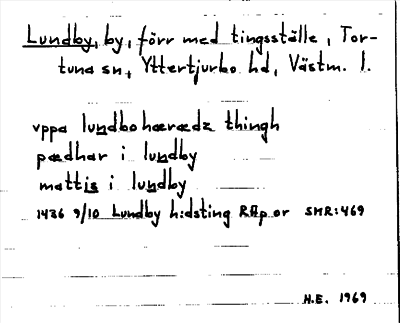 Lundby, by, förr med tingsställe, Tor-
tuna sn, Yttertjurbo hd, Västm. l.
vppa lundbohærædz thingh
pædhar i lundby
mattis i lundby
1436 9/10 Lundby h:dsting RAp or SMR:469
H.E. 1969